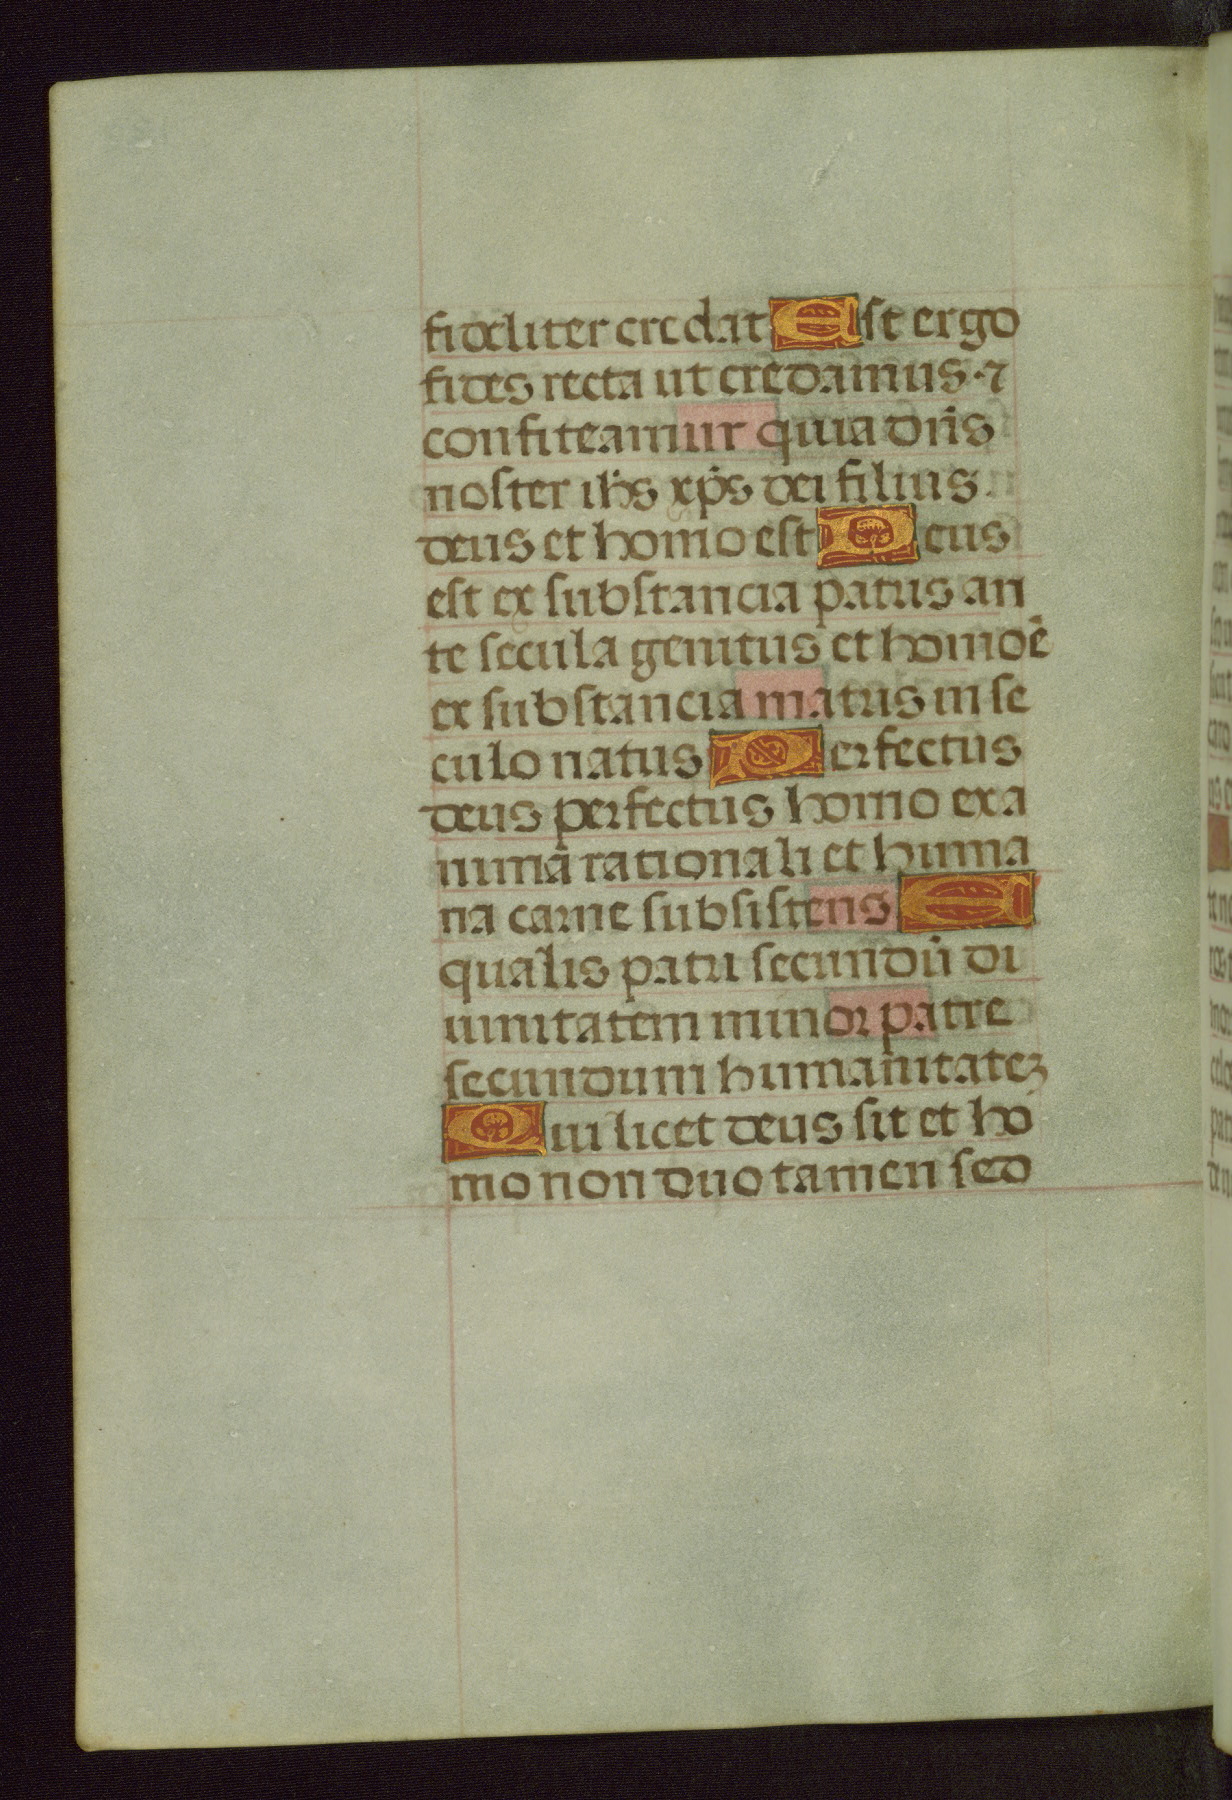 fideliter credat Est ergo
fides recta ut credamus ⁊
confiteamur quia dn̄s
noster ih̄s xp̄s dei filius
deus et homo est Deus
est ex substancia patris an
te secula genitus et homo ē
ex substancia matris in se
culo natus Perfectus
deus perfectus homo ex a
nima rationali et huma
na carne subsistens E
qualis patri secundū di
uinitatem minor patre
secundum humanitateꝫ
Qui licet deus sit et ho
mo non duo tamen sed